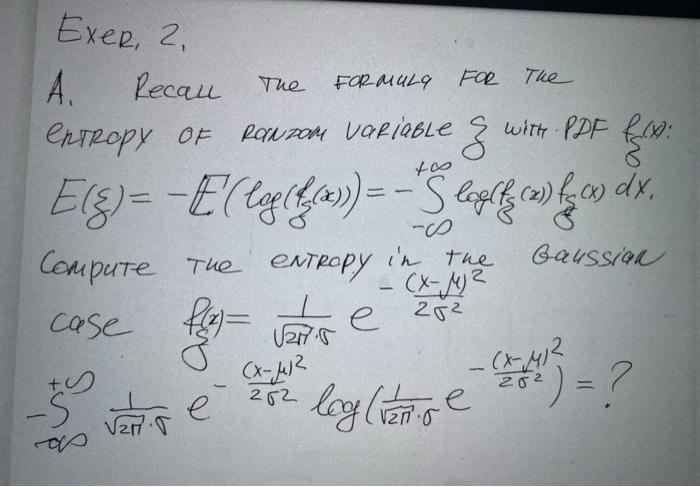 Exer. 2.
A. Recall the formula for the
entropy of random variable ξ with PDF f_ξ(x):
E(ξ) = -E(log(f_ξ(x))) = -∫_{-∞}^{+∞} log(f_ξ(x)) f_ξ(x) dx.
Compute the entropy in the Gaussian
case f_ξ(x) = \frac{1}{\sqrt{2π}·σ} e^{-\frac{(x-μ)^2}{2σ^2}}
-∫_{-∞}^{+∞} \frac{1}{\sqrt{2π}·σ} e^{-\frac{(x-μ)^2}{2σ^2}} log(\frac{1}{\sqrt{2π}·σ} e^{-\frac{(x-μ)^2}{2σ^2}}) = ?